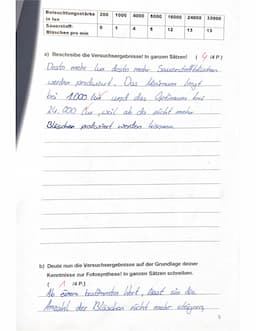 Beleuchtungsstärke in lux 200 1000 4000 5000 16000 24000 33000
Sauerstoff: Bläschen pro min 0 1 4 5 12 13 13
a) Beschreibe die Versuchsergebnisse! In ganzen Sätzen! ( 4 /4 P.)
Desto mehr Lux desto mehr Sauerstoffbläschen
werden produziert. Das Minimum liegt
bei 1000 lux und das Optimum bei
24.000 lux, weil ab da nicht mehr
Bläschen produziert werden können.
b) Deute nun die Versuchsergebnisse auf der Grundlage deiner
Kenntnisse zur Fotosynthese! In ganzen Sätzen schreiben.
( 1 /4 P.)
Ab einem bestimmten Wert, lässt sich die
Anzahl der Bläschen nicht mehr steigern,